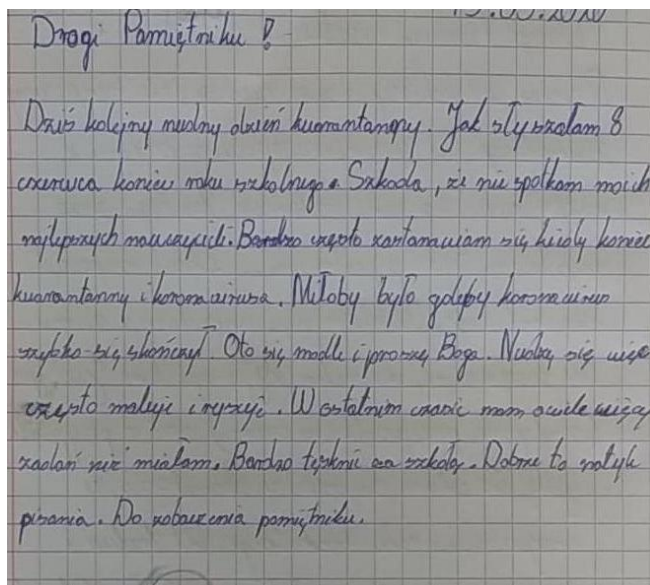 Drogi Pamiętniku!
Dziś kolejny nudny dzień kwarantanny. Jak słyszałam 8
czerwca koniec roku szkolnego. Szkoda, że nie spotkam moich
najlepszych nauczycieli. Bardzo często zastanawiam się kiedy koniec
kwarantanny i koronawirusa. Miłoby było gdyby koronawirus
szybko się skończył. Oto się modlę i proszę Boga. Nudzę się więc
często maluję i rysuję. W ostatnim czasie mam owiele więcej
zadań niż miałam. Bardzo tęsknię za szkołą. Dobrze to natyle
pisania. Do zobaczenia pamiętniku.